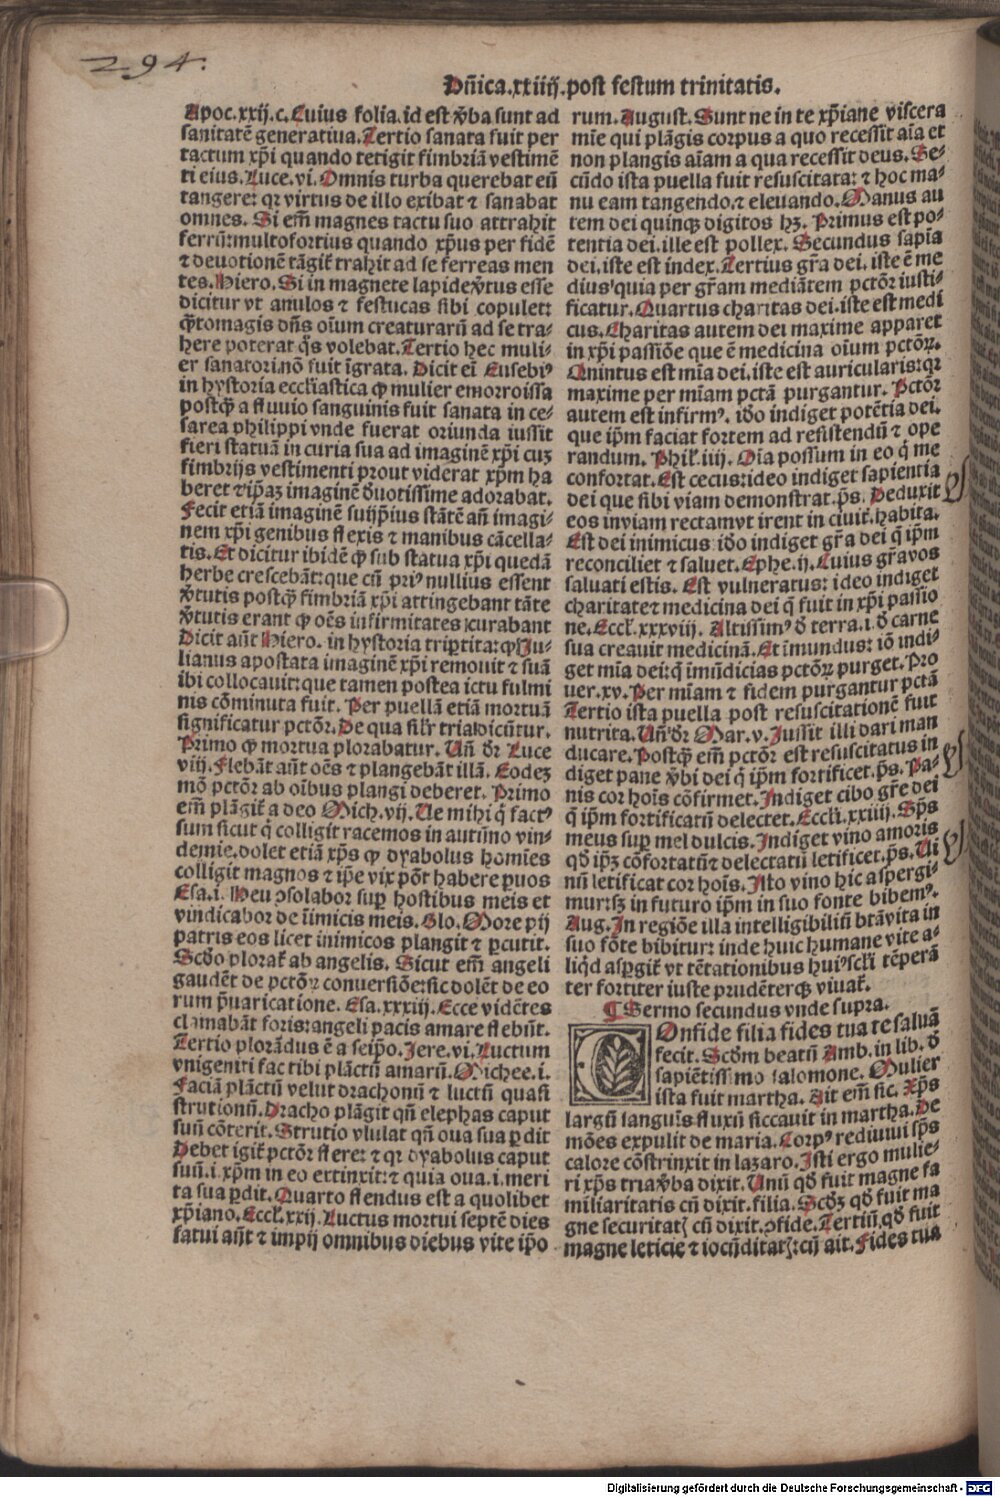 294.
Dñica.xxiiij.post festum trinitatis.
Apoc.xxij.c.Cuius folia.id est v̓ba sunt ad
sanitatē generatiua.Tertio sanata fuit per
tactum xp̄i quando tetigit fimbriā vestimē
ti eius.Luce.vi.Omnis turba querebat eū
tangere: qꝛ virtus de illo exibat ⁊ sanabat
omnes. Si em̄ magnes tactu suo attrahit
ferrū:multofortius quando xp̄us per fidē
⁊ deuotionē tāgit̄ trahit ad se ferreas men
tes.Hiero.Si in magnete lapidev̓tus esse
dicitur vt anulos ⁊ festucas sibi copulet:
q̄tomagis dn̄s oīum creaturarū ad se tra-
here poterat q̄s volebat.Tertio hec muli-
er sanatori.nō fuit īgrata. Dicit eī Eusebiꝰ
in hystoria eccl̄iastica ꝙ mulier emorroissa
postq̄ a fluuio sanguinis fuit sanata in ce-
sarea philippi vnde fuerat oriunda iussit
fieri statuā in curia sua ad imaginē xp̄i cuꝫ
fimbrijs vestimenti prout viderat xp̄m ha
beret ⁊ip̄aꝫ imaginē d̓uotissime adorabat.
Fecit etiā imaginē suijp̄ius stātē añ imagi-
nem xp̄i genibus flexis ⁊ manibus cācella-
tis.Et dicitur ibidē ꝙ sub statua xp̄i quedā
herbe crescebāt:que cū priꝰ nullius essent
v̓tutis postq̄ fimbriā xp̄i attingebant tāte
v̓tutis erant ꝙ oēs infirmitates curabant
Dicit aūt Hiero. in hystoria triptita:ꝙ Ju-
lianus apostata imaginē xp̄i remouit ⁊ suā
ibi collocauit:que tamen postea ictu fulmi
nis cōminuta fuit. Per puellā etiā mortuā
significatur pctōr.De qua sil̓r tria dicūtur.
Primo ꝙ mortua plorabatur. Uñ dr̄ Luce
viij.Flebāt aūt oēs ⁊ plangebāt illā. Eodeꝫ
mō pctōr ab oībus plangi deberet. Primo
em̄ plāgit̄ a deo Mich.vij.Ue mihi q̄ factꝰ
sum sicut q̄ colligit racemos in autūno vin-
demie.dolet etiā xp̄s ꝙ dyabolus homīes
colligit magnos ⁊ ip̄e vix pōt habere ꝑuos
Esa.i. Heu ɔsolabor suꝑ hostibus meis et
vindicabor de īimicis meis. Glo.More pij
patris eos licet inimicos plangit ⁊ ꝑcutit.
Scd̓o plorat̄ ab angelis. Sicut em̄ angeli
gaudēt de pctōꝝ conuersiōe:sic dolēt de eo
rum p̄uaricatione. Esa.xxxiij.Ecce vidētes
clamabāt foris:angeli pacis amare flebūt.
Tertio plorādus ē a seip̄o.Jere.vi.Luctum
vnigeniti fac tibi plāctū amarū.Michee.i.
Faciā plāctū velut drachonū ⁊ luctū quasi
strutionū.Dracho plāgit qñ elephas caput
suū cōterit.Strutio vlulat qñ oua sua ꝑdit
Debet igit̄ pctōr flere: ⁊ qꝛ dyabolus caput
suū.i.xp̄m in eo extinxit:⁊ quia oua.i.meri
ta sua ꝑdit.Quarto flendus est a quolibet
xp̄iano.Eccl̄.xxij.Luctus mortui septē dies
fatui aūt ⁊ impij omnibus diebus vite ip̄o
rum. August. Sunt ne in te xp̄iane viscera
mīe qui plāgis corpus a quo recessit aīa et
non plangis aīam a qua recessit deus. Se-
cūdo ista puella fuit resuscitata: ⁊ hoc ma-
nu eam tangendo.⁊ eleuando.Manus au
tem dei quinqꝫ digitos hꝫ. Primus est po-
tentia dei.ille est pollex. Secundus sapīa
dei.iste est index.Tertius gr̄a dei.iste ē me
dius quia per gr̄am mediātem pctōr iusti-
ficatur.Quartus charitas dei.iste est medi
cus.Charitas autem dei maxime apparet
in xp̄i passiōe que ē medicina oīum pctōꝝ.
Quintus est mīa dei.iste est auricularis:qꝛ
maxime per mīam pctā purgantur. Pctōr
autem est infirmꝰ. iđo indiget potētia dei.
que ip̄m faciat fortem ad resistendū ⁊ ope
randum. Phil̄.iiij. Oīa possum in eo q̄ me
confortat.Est cecus:ideo indiget sapientia
dei que sibi viam demonstrat.ps̄. Deduxit
eos inviam rectamvt irent in ciuit̄.habita.
Est dei inimicus iđo indiget gr̄a dei q̄ ip̄m
reconciliet ⁊ saluet.Ephe.ij.Cuius gr̄avos
saluati estis. Est vulneratus: ideo indiget
charitate⁊ medicina dei q̄ fuit in xp̄i passio
ne.Eccl̄.xxxviij. Altissimꝰ d̓ terra.i. d̓ carne
sua creauit medicinā.Et īmundus: iō indi-
get mīa dei:q̄ īmūdicias pctōꝝ purget.Pro
uer.xv.Per mīam ⁊ fidem purgantur pctā
Tertio ista puella post resuscitationē fuit
nutrita.Uñ dr̄ Mar.v.Jussit illi dari man
ducare. Postq̄ em̄ pctōr est resuscitatus in
diget pane v̓bi dei q̄ ip̄m fortificet.ps̄. Pa-
nis cor hoīs cōfirmet.Jndiget cibo gr̄e dei
q̄ ip̄m fortificatū delectet.Eccl̄i.xxiiij. Sp̄s
meus suꝑ mel dulcis.Jndiget vino amoris
qđ ip̄ꝫ cōfortatū⁊ delectatū letificet.ps̄.Ui
nū letificat cor hoīs.Jsto vino hic aspergi-
mur:sꝫ in futuro ip̄m in suo fonte bibemꝰ.
Aug.Jn regiōe illa intelligibiliū btāvita in
suo fōte bibitur: inde huic humane vite a-
liqđ asꝑgit̄ vt tētationibus huiꝰ scl̄i tēperā
ter fortiter iuste prudēterqꝫ viuat̄.
¶ Sermo secundus vnde supra.
COnfide filia fides tua te saluā
fecit. Scd̓m beatū Amb.in lib. d̓
sapiētissimo salomone. Mulier
ista fuit martha. Ait em̄ sic. Xp̄s
largū sanguīs fluxū siccauit in martha.De
mōes expulit de maria.Corpꝰ rediuiui sp̄s
calore cōstrinxit in lazaro.Jsti ergo mulie-
ri xp̄s tria v̓ba dixit.Unū qđ fuit magne fa
miliaritatis cū dixit.filia.Scd̓ꝫ qđ fuit ma
gne securitatꝭ cū dixit.ɔfide.Tertiū.qđ fuit
magne leticie ⁊ iocūditatꝭ:cū ait.Fides tua
Digitalisierung gefördert durch die Deutsche Forschungsgemeinschaft - DFG